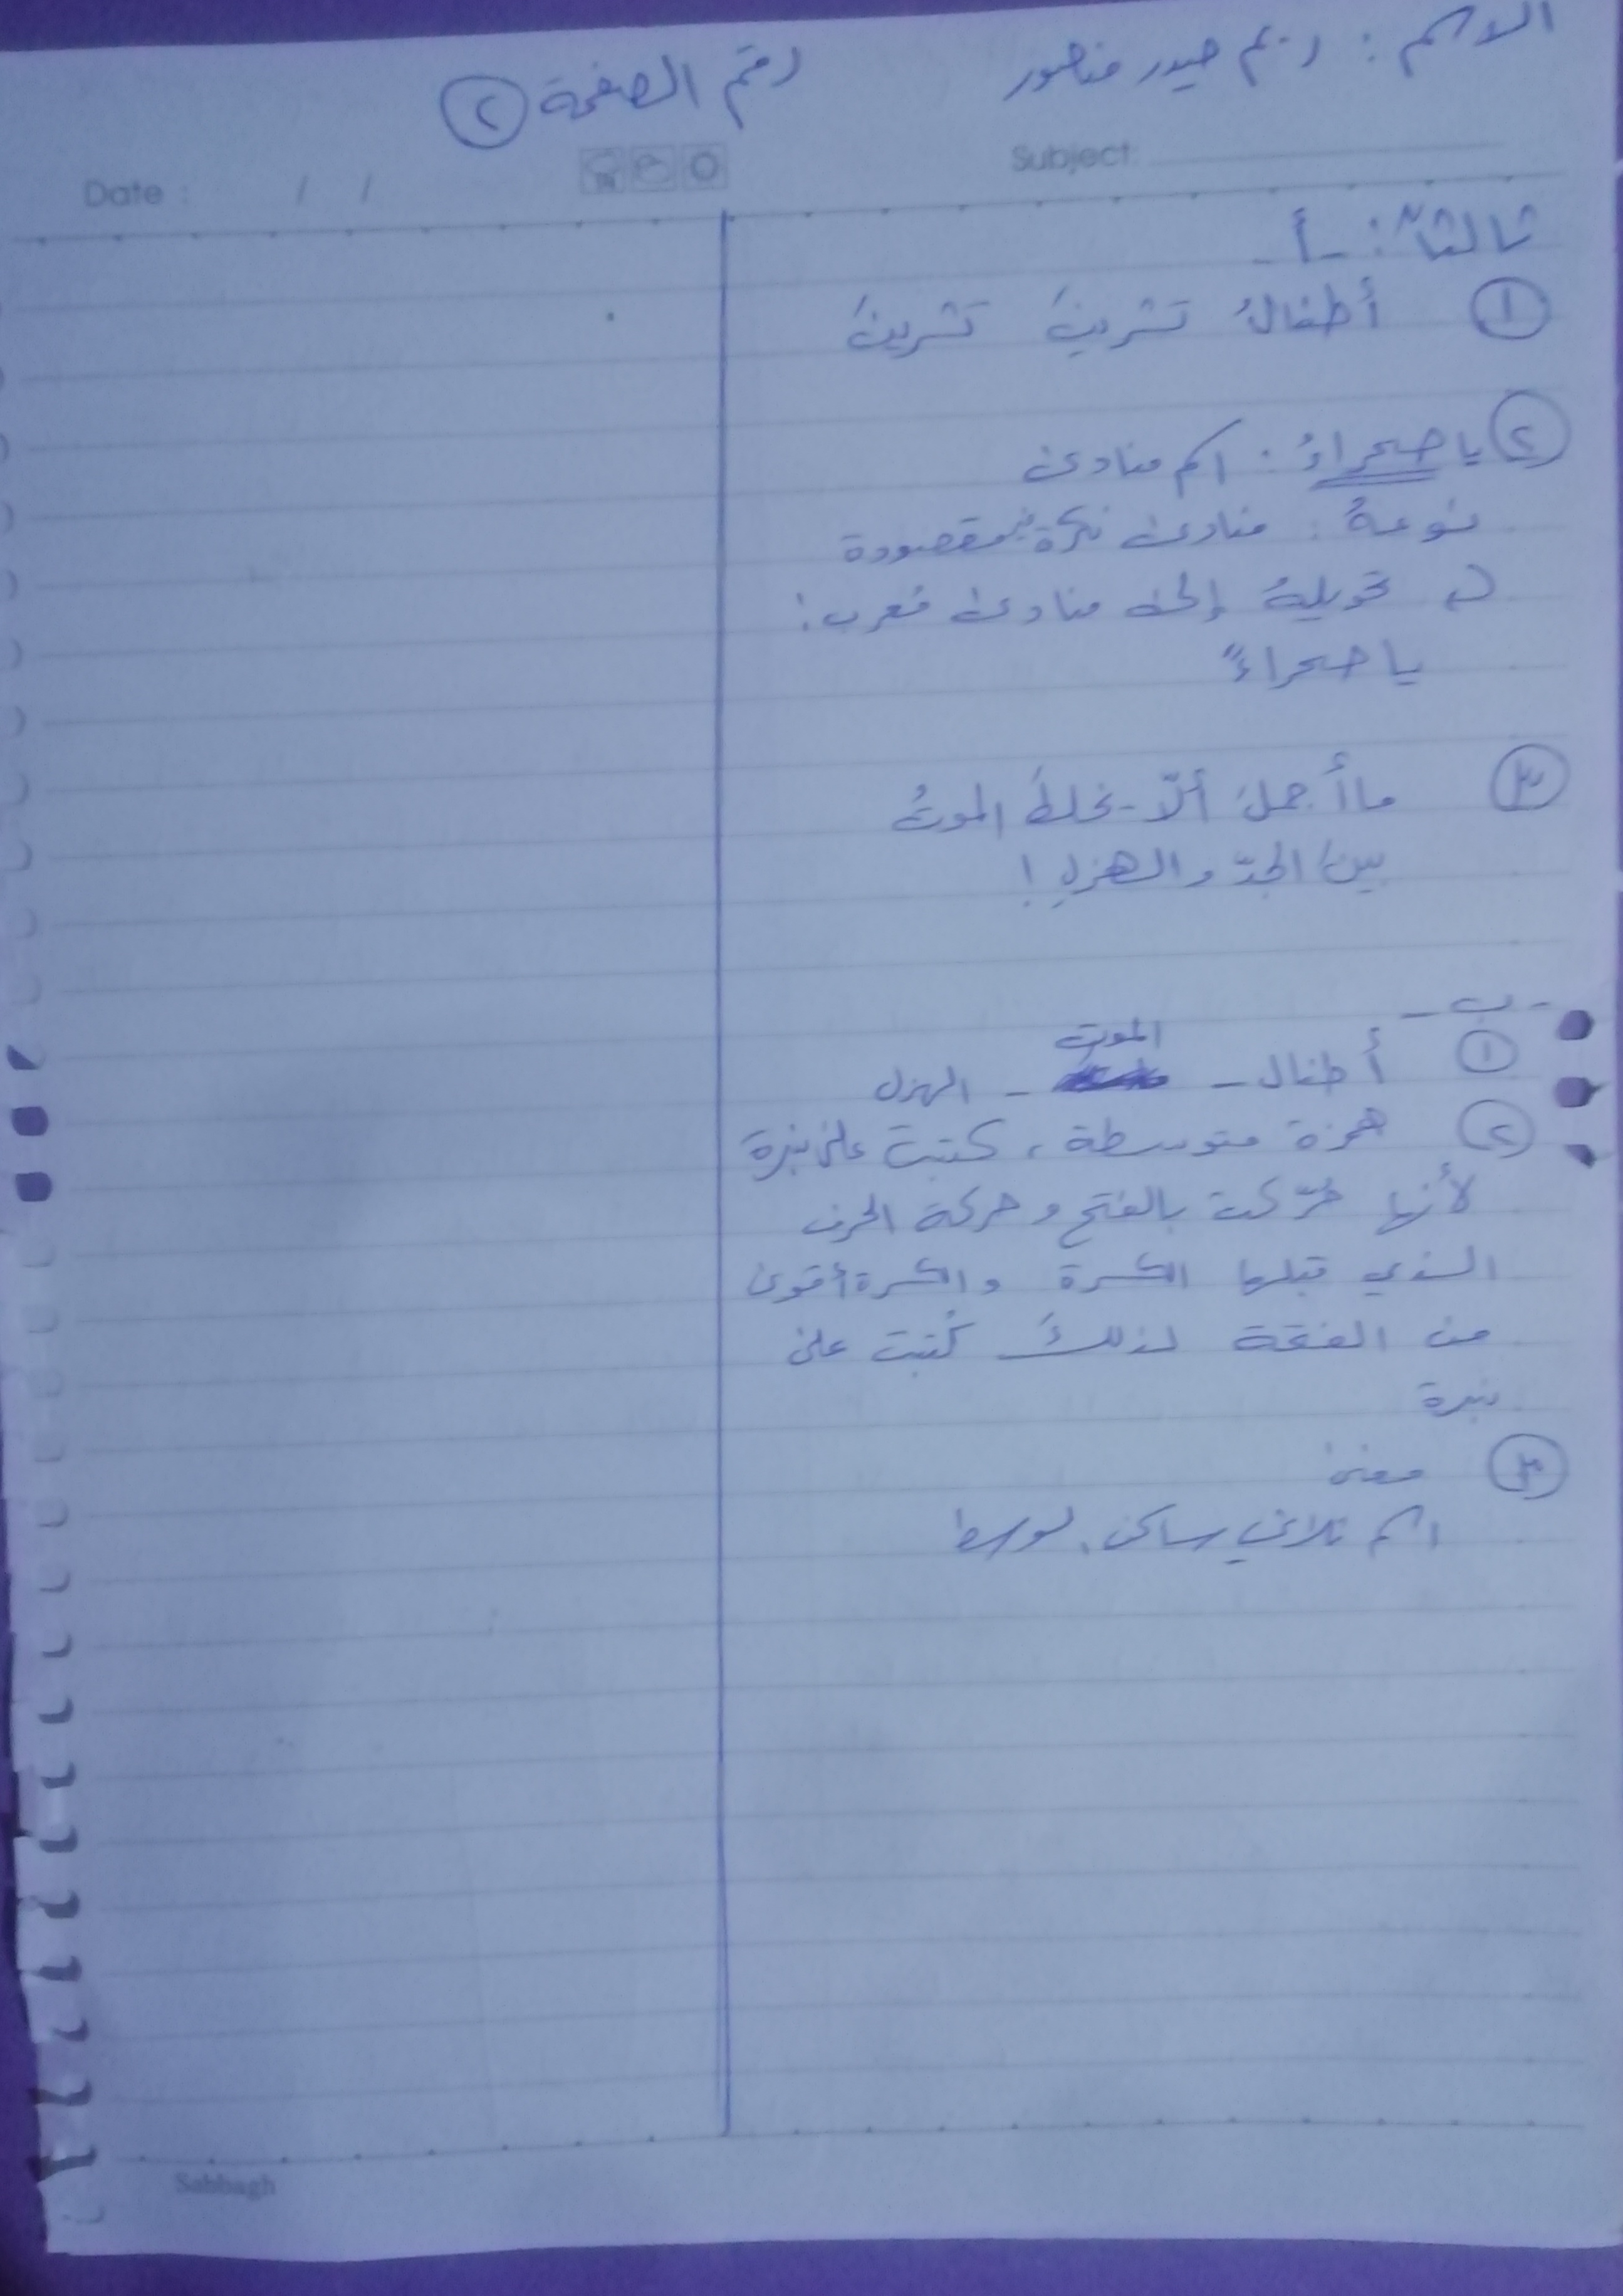 الاسم : ريم حيدر منصور
رقم الصفحة ٢
Subject:
Date : / /
ثالثاً : - أ -
١ أطفالُ تشرينَ تشرينَ
٢ يا صحراءُ : اسم منادى
نوعهُ : منادى نكرة مقصودة
تحويله إلى منادى معرب :
يا صحراءً
٣ ما أجملَ ألّا يخلطَ الموتُ
بينَ الجدّ والهزلِ !
- ب -
١ أطفال - الموت - الهزل
٢ همزة متوسطة ، كتبت على نبرة
لأنها حُرّكت بالفتح و حركة الحرف
الذي قبلها الكسرة والكسرة أقوى
من الفتحة لذلكَ كُتبت على
نبرة
٣
اسم ثلاثي ساكن الوسط
Sabbagh